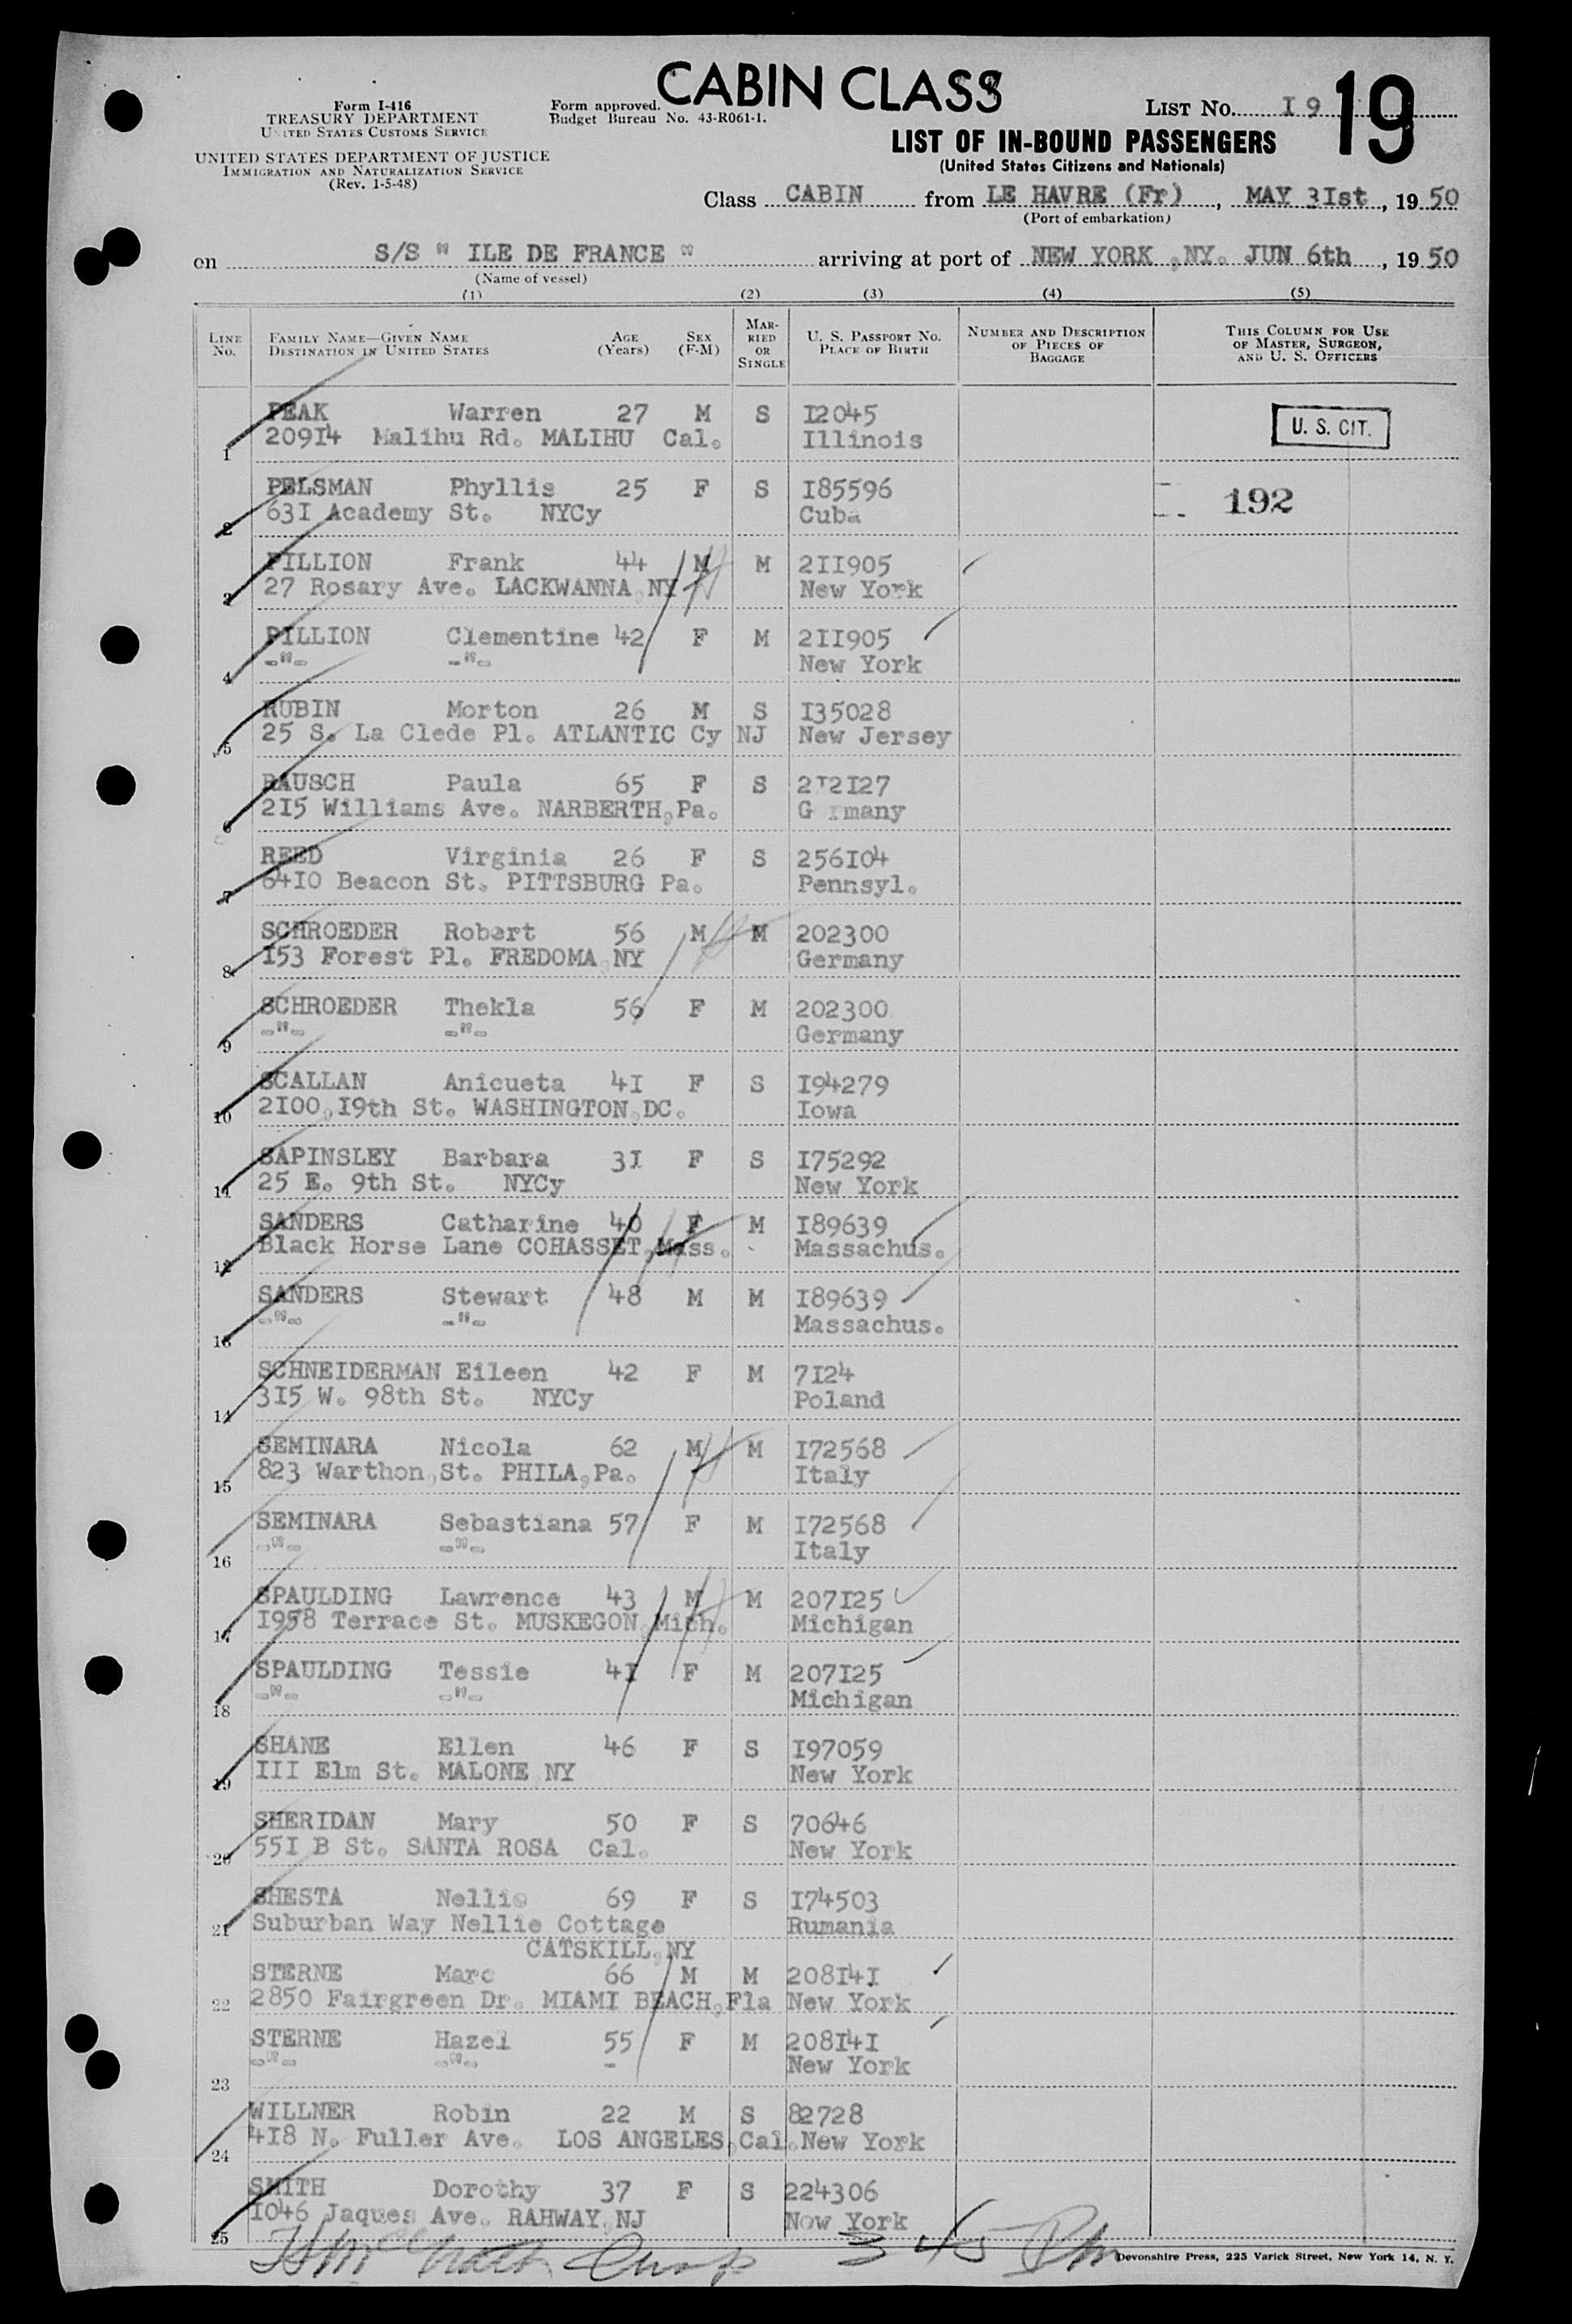 CABIN CLASS
Form I-416
TREASURY DEPARTMENT
UNITED STATES CUSTOMS SERVICE
UNITED STATES DEPARTMENT OF JUSTICE
IMMIGRATION AND NATURALIZATION SERVICE
(Rev. 1-5-48)
Form approved.
Budget Bureau No. 43-R061-1.
LIST No. I9 19
LIST OF IN-BOUND PASSENGERS
(United States Citizens and Nationals)
Class CABIN from LE HAVRE (Fr), MAY 3Ist, 1950
(Port of embarkation)
on S/S " ILE DE FRANCE " arriving at port of NEW YORK ,NY. JUN 6th, 1950
(Name of vessel)
(1) (2) (3) (4) (5)
LINE No. FAMILY NAME—GIVEN NAME DESTINATION IN UNITED STATES AGE (Years) SEX (F-M) MARRIED OR SINGLE U. S. PASSPORT No. PLACE OF BIRTH NUMBER AND DESCRIPTION OF PIECES OF BAGGAGE THIS COLUMN FOR USE OF MASTER, SURGEON, AND U. S. OFFICERS
1 PEAK Warren 27 M S I2045 U. S. CIT.
209I4 Malihu Rd. MALIHU Cal. Illinois
2 PELSMAN Phyllis 25 F S I85596 192
63I Academy St. NYCy Cuba
3 PILLION Frank 44 M M 2II905
27 Rosary Ave. LACKWANNA,NY New York
4 PILLION Clementine 42 F M 2II905
-"- -"- New York
5 RUBIN Morton 26 M S I35028
25 S. La Clede Pl. ATLANTIC Cy NJ New Jersey
6 RAUSCH Paula 65 F S 2I2I27
2I5 Williams Ave. NARBERTH,Pa. G rmany
7 REED Virginia 26 F S 256I04
64I0 Beacon St. PITTSBURG Pa. Pennsyl.
8 SCHROEDER Robert 56 M M 202300
I53 Forest Pl. FREDOMA,NY Germany
9 SCHROEDER Thekla 56 F M 202300
-"- -"- Germany
10 SCALLAN Anicueta 4I F S I94279
2I00,I9th St. WASHINGTON,DC. Iowa
11 SAPINSLEY Barbara 3I F S I75292
25 E. 9th St. NYCy New York
12 SANDERS Catharine 40 F M I89639
Black Horse Lane COHASSET,Mass. Massachus.
13 SANDERS Stewart 48 M M I89639
-"- -"- Massachus.
14 SCHNEIDERMAN Eileen 42 F M 7I24
3I5 W. 98th St. NYCy Poland
15 SEMINARA Nicola 62 M M I72568
823 Warthon,St. PHILA,Pa. Italy
16 SEMINARA Sebastiana 57 F M I72568
-"- -"- Italy
17 SPAULDING Lawrence 43 M M 207I25
I958 Terrace St. MUSKEGON,Mich. Michigan
18 SPAULDING Tessie 4I F M 207I25
-"- -"- Michigan
19 SHANE Ellen 46 F S I97059
III Elm St. MALONE,NY New York
20 SHERIDAN Mary 50 F S 70646
55I B St. SANTA ROSA Cal. New York
21 SHESTA Nellie 69 F S I74503
Suburban Way Nellie Cottage Rumania
CATSKILL,NY
22 STERNE Marc 66 M M 208I4I
2850 Fairgreen Dr. MIAMI BEACH,Fla New York
23 STERNE Hazel 55 F M 208I4I
-"- -"- - New York
24 WILLNER Robin 22 M S 82728
4I8 N. Fuller Ave. LOS ANGELES,Cal. New York
25 SMITH Dorothy 37 F S 224306
I046 Jaques Ave. RAHWAY,NJ Now York
345 Pm
Devonshire Press, 225 Varick Street, New York 14, N. Y.